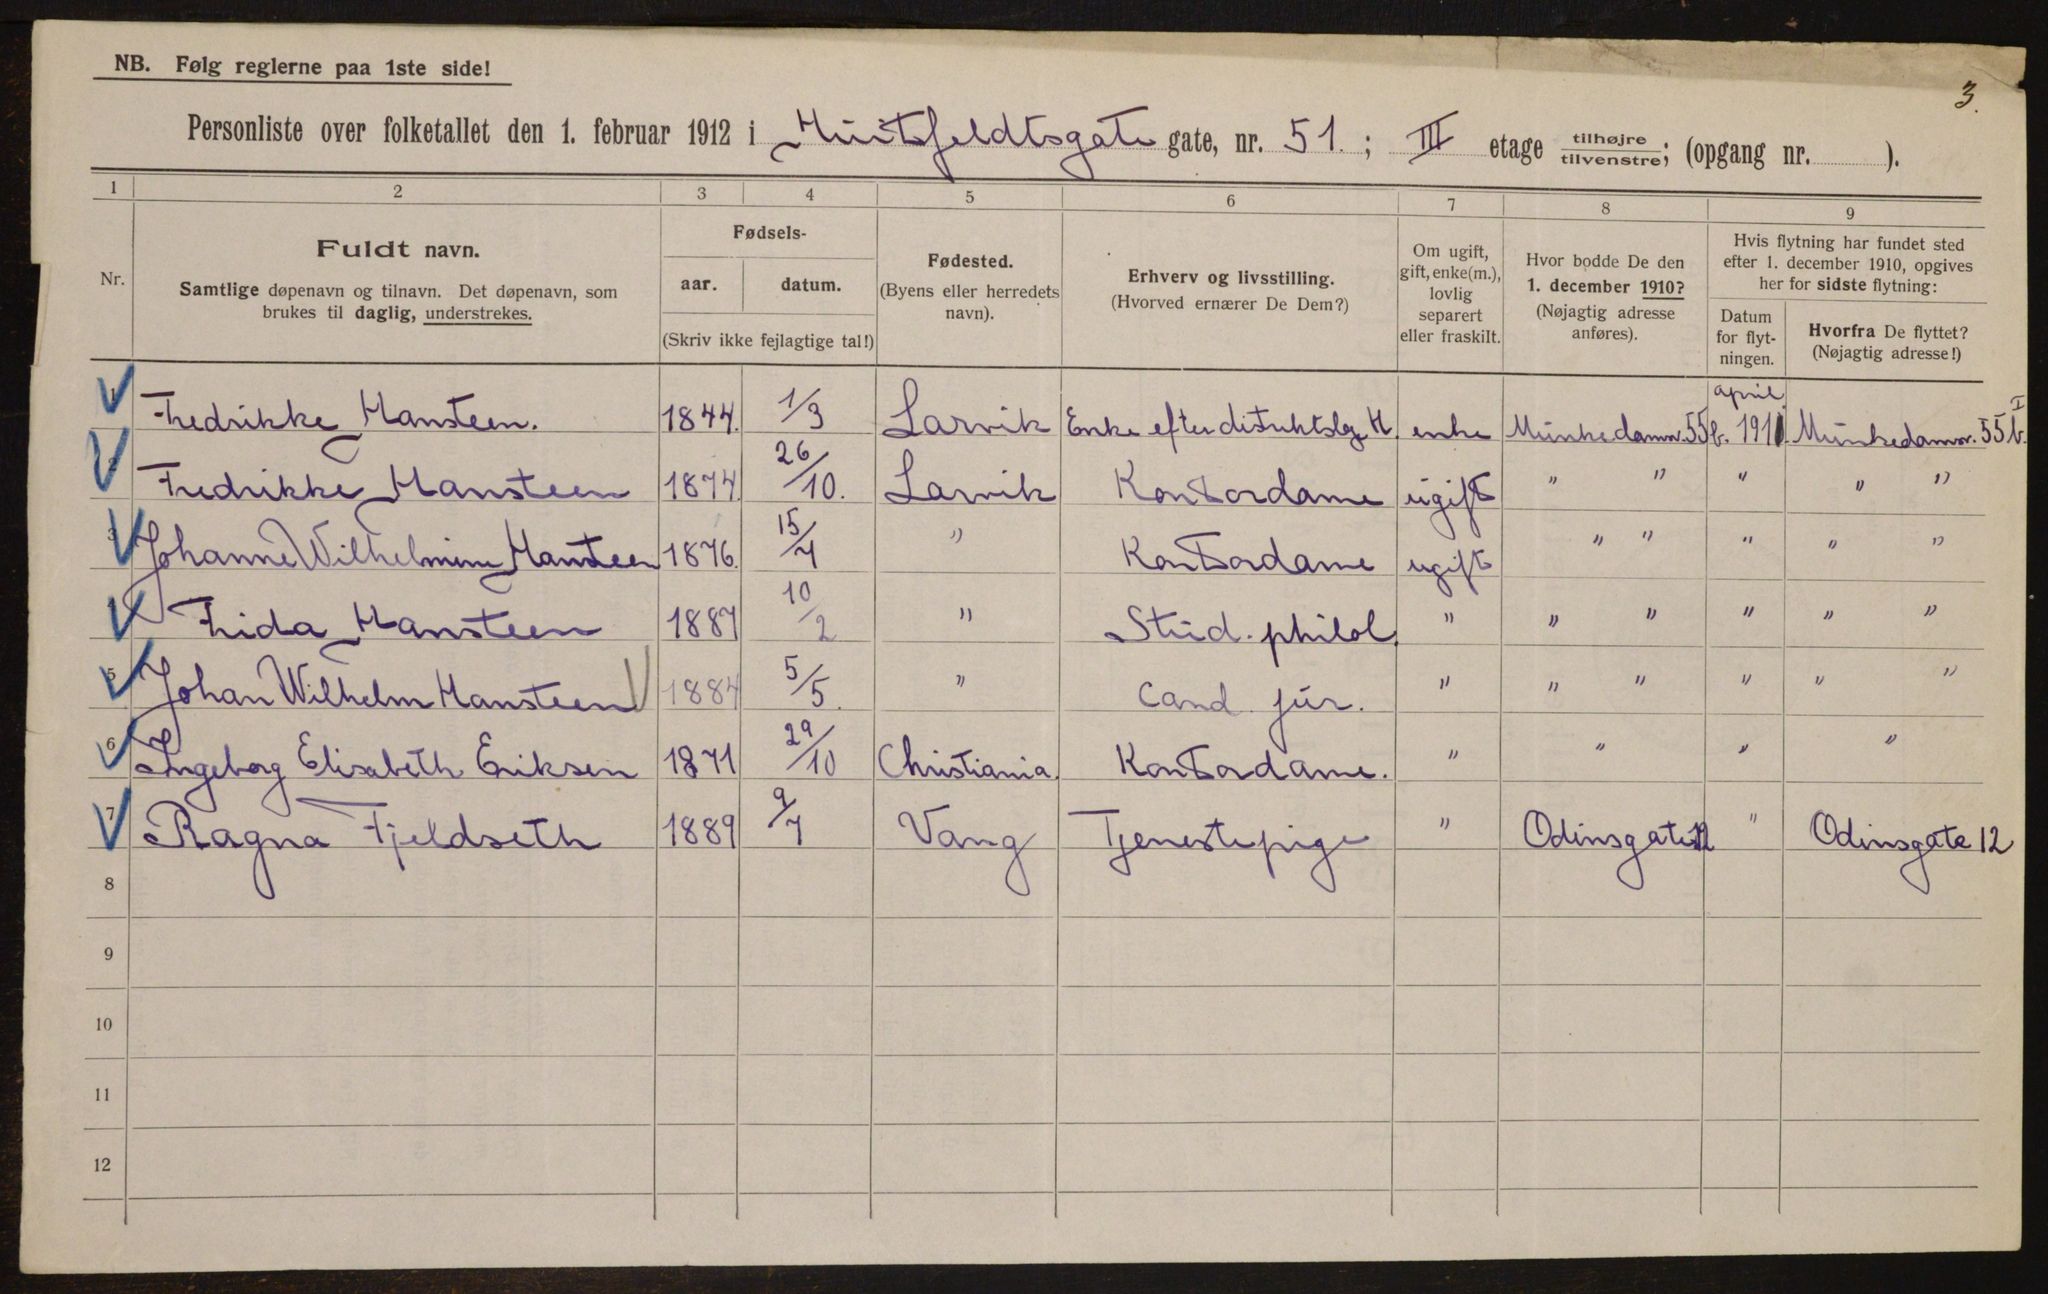 3.
NB. Følg reglerne paa 1ste side!
Personliste over folketallet den 1. februar 1912 i Huitsfeldtsgate gate, nr. 51. ; III etage tilhøjre / tilvenstre; (opgang nr. ).
1 2 3 4 5 6 7 8 9
Nr.
Fuldt navn.
Samtlige døpenavn og tilnavn. Det døpenavn, som
brukes til daglig, understrekes.
Fødsels-
aar. datum.
(Skriv ikke fejlagtige tal!)
Fødested.
(Byens eller herredets
navn).
Erhverv og livsstilling.
(Hvorved ernærer De Dem?)
Om ugift,
gift, enke(m.),
lovlig
separert
eller fraskilt.
Hvor bodde De den
1. december 1910?
(Nøjagtig adresse
anføres).
Hvis flytning har fundet sted
efter 1. december 1910, opgives
her for sidste flytning:
Datum
for flyt-
ningen.
Hvorfra De flyttet?
(Nøjagtig adresse!)
1 Fredrikke Hansteen. 1844. 1/3 Larvik Enke efter distriktslæge H. enke Munkedamsv. 55 b. april 1911. Munkedamsv. 55 b. I
2 Fredrikke Hansteen 1874. 26/10. Larvik Kontordame ugift " " " " "
3 Johanne Wilhelmine Hansteen 1876. 15/7 " Kontordame ugift " " " " "
Frida Hansteen 1887 10/2 " Stud. philol. " " " " " "
5 Johan Wilhelm Hansteen 1884 5/5. " Cand. jur. " " " " " "
6 Ingeborg Elisabeth Eriksen 1871 29/10 Christiania. Kontordame. " " " "
7 Ragna Fjeldseth 1889 9/7 Vang Tjenestepige " Odinsgate 12 " Odinsgate 12
8
9
10
11
12